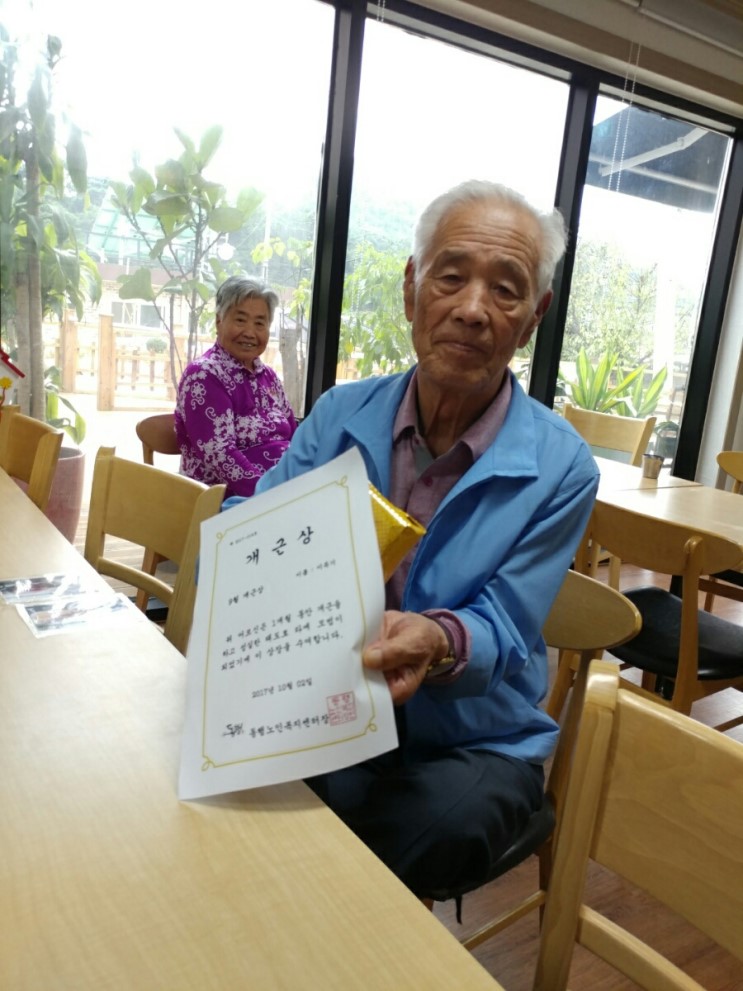 개 근 상
이름 :
9월 개근상
위 어르신은 1개월 동안 개근을
하고 성실한 태도로 타에 모범이
되었기에 이 상장을 수여합니다.
2017년 10월 02일
노인복지센터장